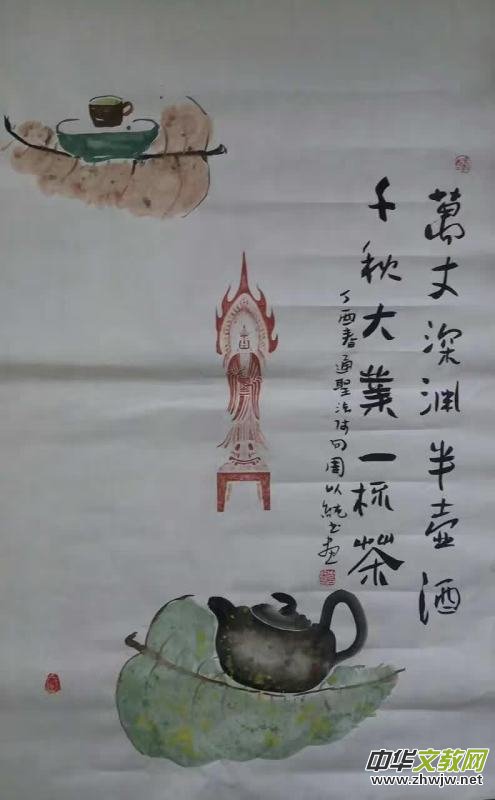 萬丈深渊半壺酒
千秋大業一杯茶
丁酉春通聖法 以純书画
中华文教网
www.zhwjw.net